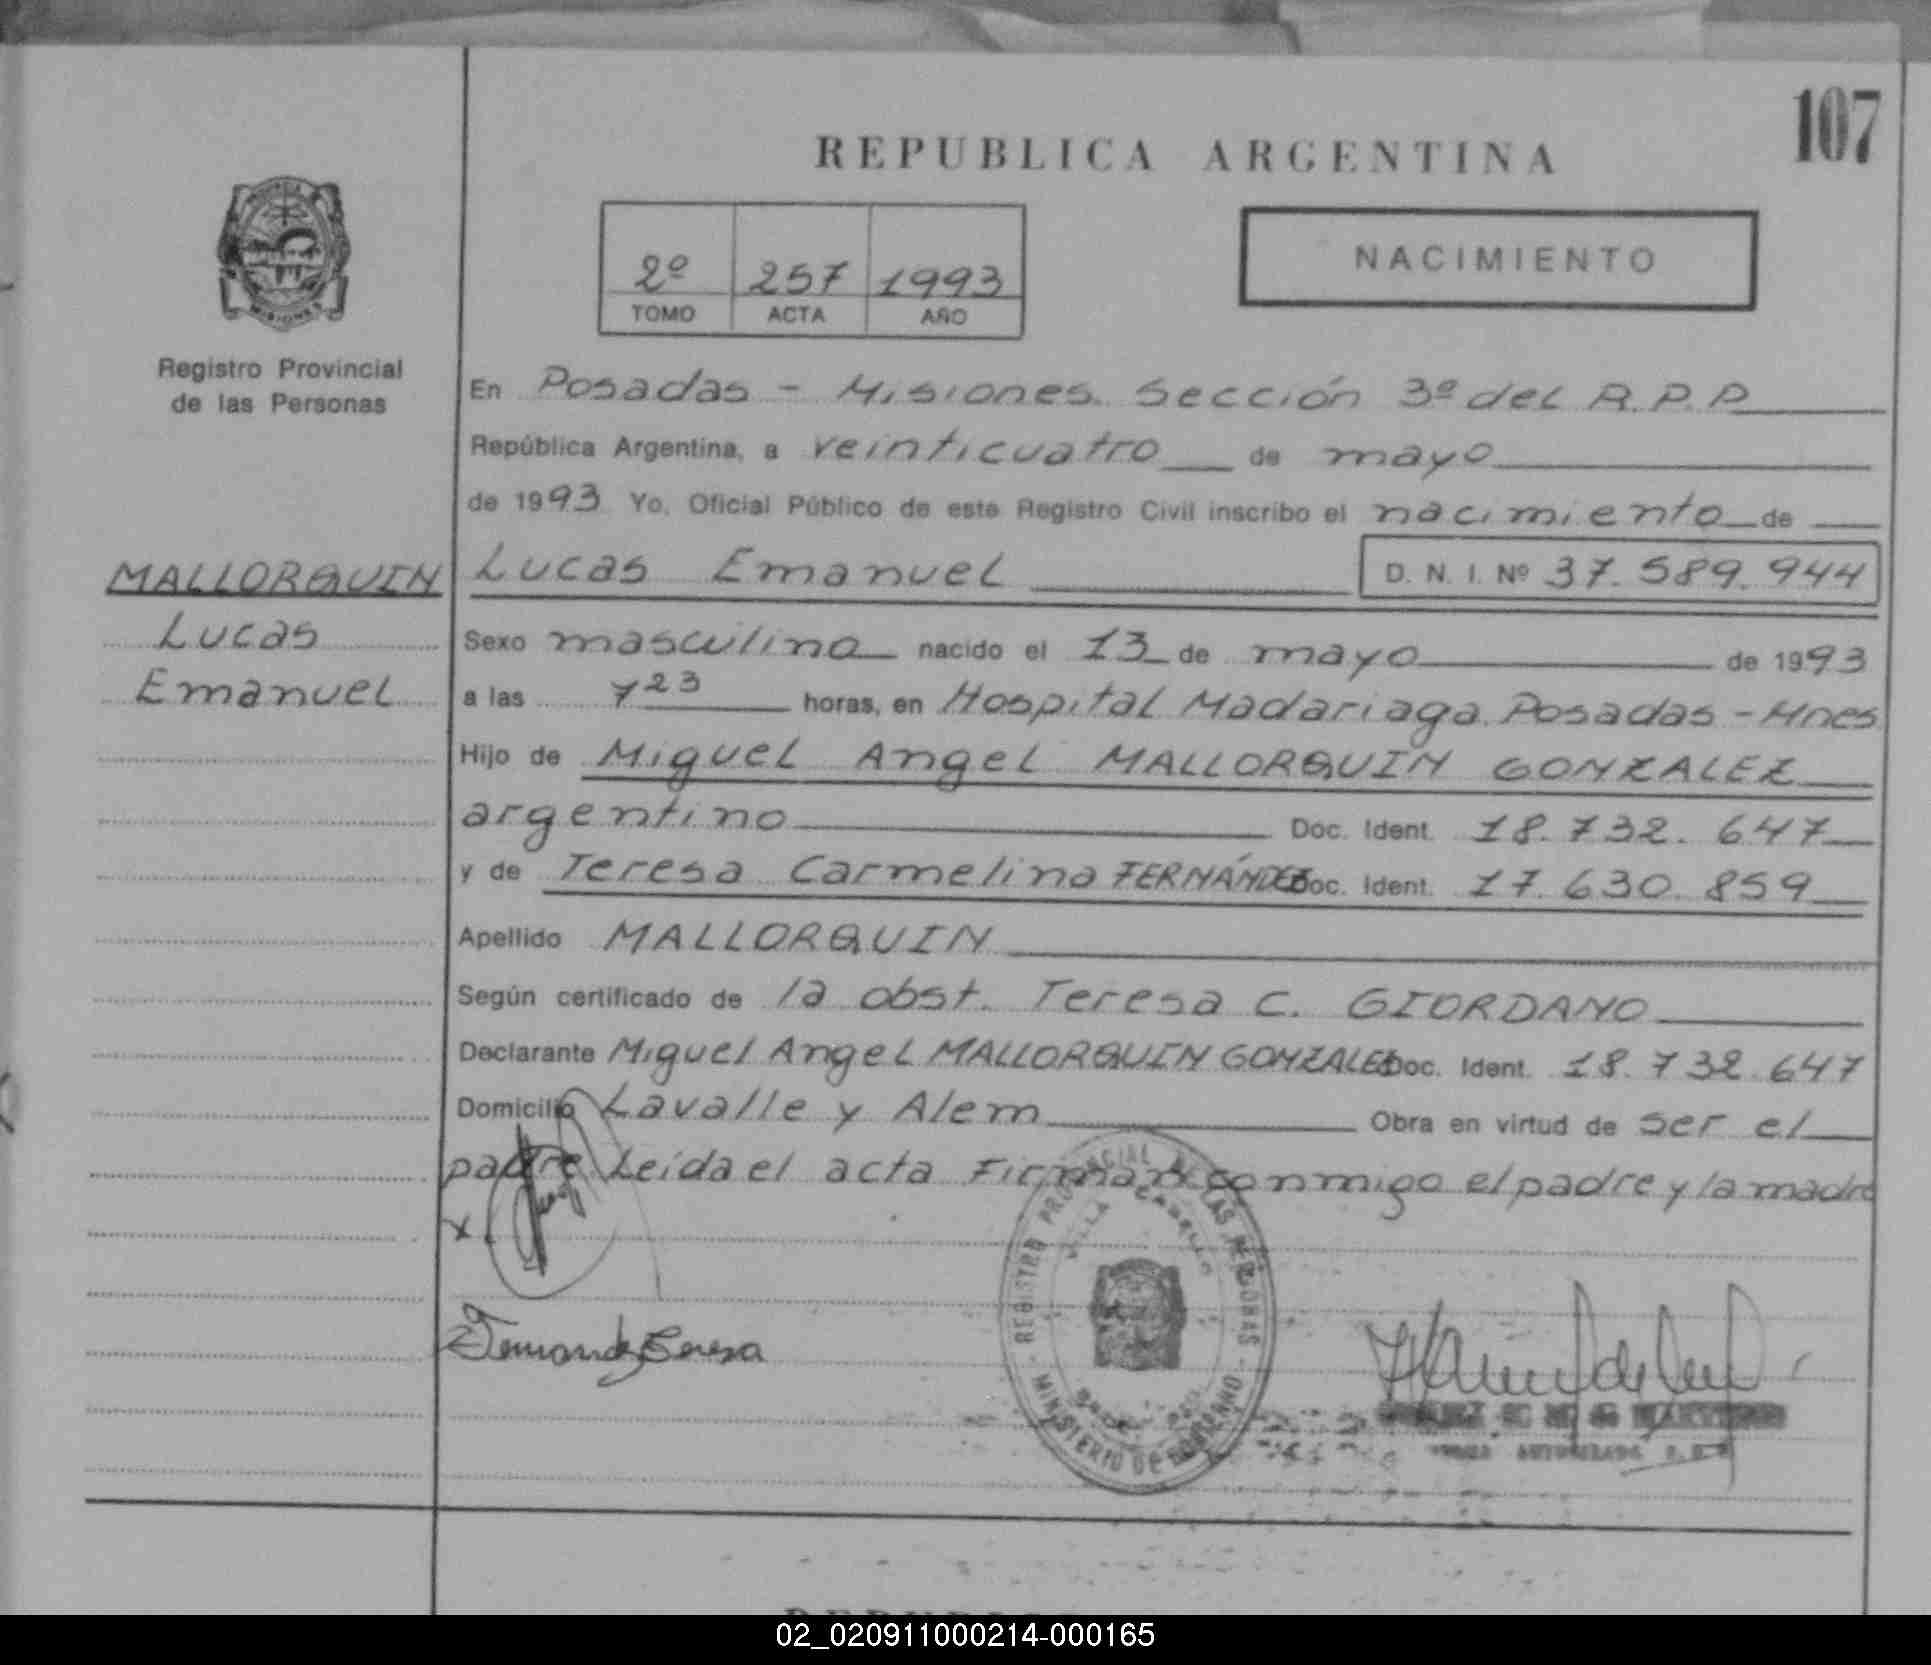 107
REPUBLICA ARGENTINA
2º 257 1993
TOMO ACTA AÑO
NACIMIENTO
MISIONES
Registro Provincial
de las Personas
En Posadas - Misiones. Sección 3º del R.P.P
República Argentina, a veinticuatro de mayo
de 1993 Yo, Oficial Público de este Registro Civil inscribo el nacimiento de
MALLORQUIN
Lucas
Emanuel
Lucas Emanuel D. N. I. Nº 37.589.944
Sexo masculino nacido el 13 de mayo de 1993
a las 7 23 horas, en Hospital Madariaga. Posadas - Mnes
Hijo de Miguel Angel MALLORQUIN GONZALEZ
argentino Doc. Ident. 18.732.647
y de Teresa Carmelina FERNÁNDEZ Doc. Ident. 17.630.859
Apellido MALLORQUIN
Según certificado de la obst. Teresa C. GIORDANO
Declarante Miguel Angel MALLORQUIN GONZALEZ Doc. Ident. 18.732.647
Domicilio Lavalle y Alem Obra en virtud de ser el
padre Leída el acta Firman conmigo el padre y la madre
x
Fernandez Teresa
REGISTRO PROVINCIAL DE LAS PERSONAS
VILLA CABELLO
MINISTERIO DE GOBIERNO
02_020911000214-000165